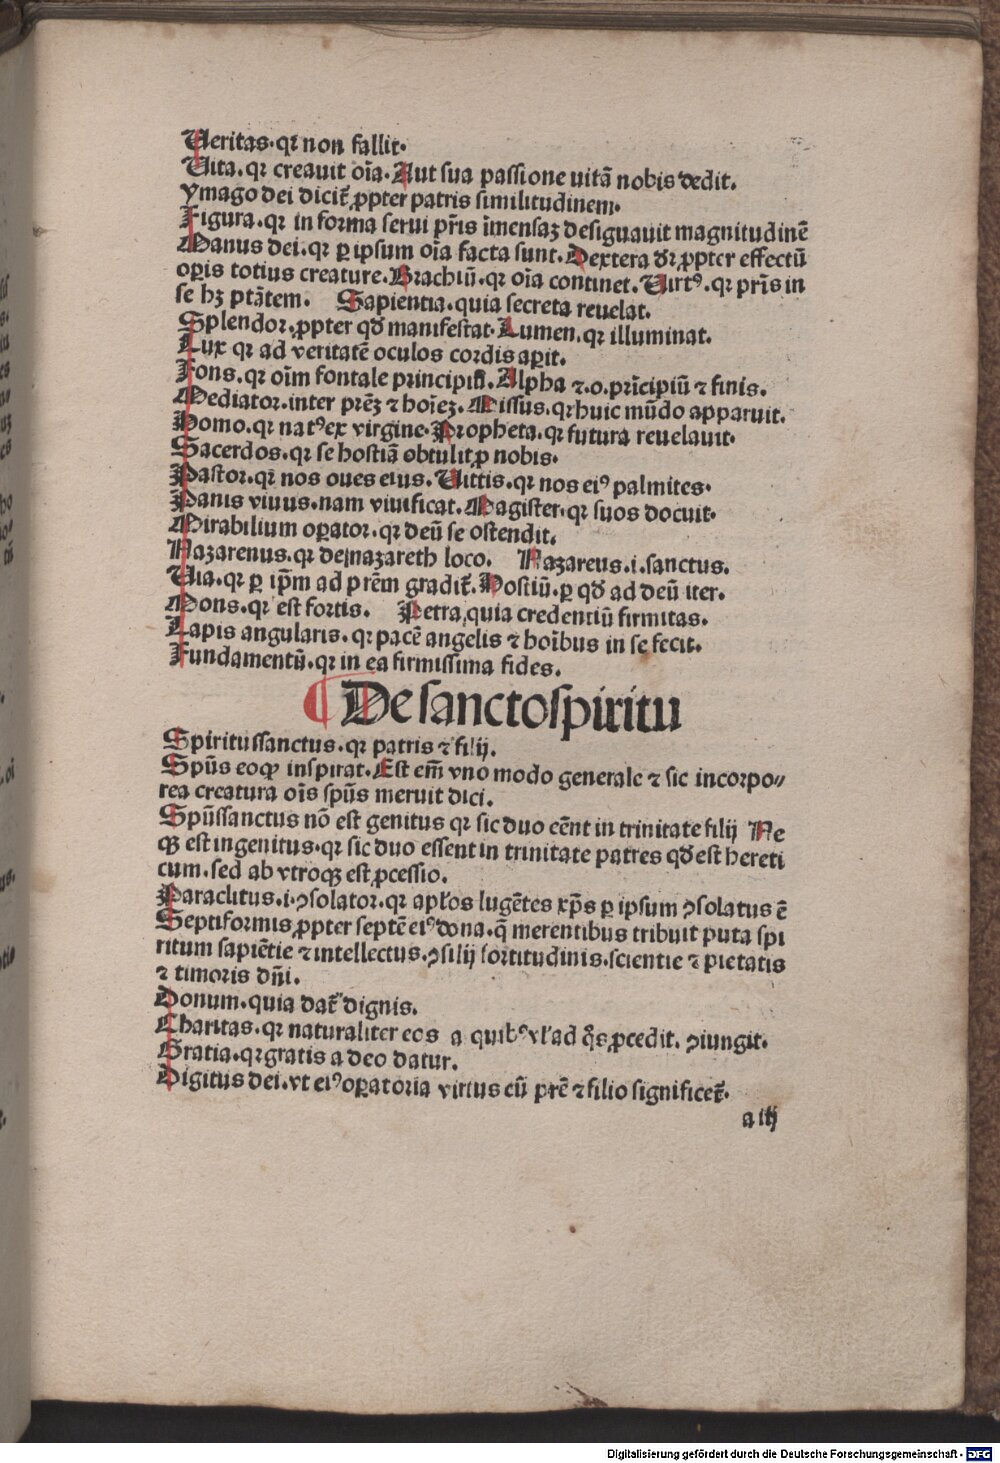 Ueritas. qꝛ non fallit.
Uita. qꝛ creauit oīa. Aut sua passione uitā nobis dedit.
ymago dei dicit᷑ ꝓpter patris similitudinem.
Figura. qꝛ in forma serui pr̄is īmensaʒ desiguauit magnitudinē
Manus dei. qꝛ ꝑ ipsum oīa facta sunt. Dextera dr̄ ꝓpter effectū
oꝑis totius creature. Brachiū. qꝛ oīa continet. Uirtꝰ. qꝛ pr̄is in
se hʒ ptātem. Sapientia. quia secreta reuelat.
Splendor. ꝓpter qd̄ manifestat. Lumen. qꝛ illuminat.
Lux qꝛ ad veritatē oculos cordis aꝑit.
Fons. qꝛ oīm fontale principiū. Alpha ⁊. o. prīcipiū ⁊ finis.
Mediator. inter prēʒ ⁊ hoīeʒ. Missus. qꝛ huic mūdo apparuit.
Homo. qꝛ natꝰ ex virgine. Propheta. qꝛ futura reuelauit.
Sacerdos. qꝛ se hostiā obtulit ꝓ nobis.
Pastor. qꝛ nos oues eius. Uittis. qꝛ nos eiꝰ palmites.
Panis viuus. nam viuificat. Magister. qꝛ suos docuit.
Mirabilium oꝑator. qꝛ deū se ostendit.
Nazarenus. qꝛ de nazareth loco. Nazareus. i. sanctus.
Uia. qꝛ ꝑ ip̄m ad prēm gradit᷑. Hostiū. ꝑ qd̄ ad deū iter.
Mons. qꝛ est fortis. Petra quia credentiū firmitas.
Lapis angularis. qꝛ pacē angelis ⁊ hoībus in se fecit.
Fundamentū. qꝛ in ea firmissima fides.
¶ De sanctospiritu
Spiritussanctus. qꝛ patris ⁊ filij.
Spūs eoqꝫ inspirat. Est em̄ vno modo generale ⁊ sic incorpo⸗
rea creatura oīs spūs meruit dici.
Spūssanctus nō est genitus qꝛ sic duo eēnt in trinitate filij Ne
qꝫ est ingenitus. qꝛ sic duo essent in trinitate patres qd̄ est hereti
cum. sed ab vtroqꝫ est ꝓcessio.
Paraclitus. i. ꝯsolator. qꝛ apłos lugētes xp̄s ꝑ ipsum ꝯsolatus ē
Septiformis ꝓpter septē eiꝰ dona. q̄ merentibus tribuit puta spi
ritum sapiētie ⁊ intellectus. ꝯsilij fortitudinis. scientie ⁊ pietatis
⁊ timoris dn̄i.
Donum. quia dat᷑ dignis.
Charitas. qꝛ naturaliter eos a quibꝰ vł ad q̄s ꝓcedit. ꝯiungit.
Gratia. qꝛ gratis a deo datur.
Digitus dei. vt eiꝰ oꝑatoria virtus cū prē ⁊ filio significet᷑.
a iij
Digitalisierung gefördert durch die Deutsche Forschungsgemeinschaft - DFG